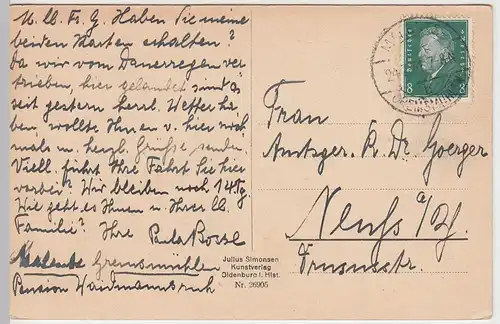 M. lb. Fr. G. Haben Sie meine
beiden Karten erhalten?
Da wir vom Dauerregen ver
trieben, hier gelandet sind u.
seit gestern herrl. Wetter ha
ben, wollte Ihnen v. hier noch
mals m. herzl. Grüße senden.
Viell. führt Ihre Fahrt Sie hier
vorbei? Wir bleiben noch 14 Tg.
Wie geht es Ihnen u. Ihrer lb.
Familie? Ihre
Malente Gremsmühlen
Pension Waidmannsruh
Deutsches Reich
8 8
Frau
Amtsger. R. Dr. Goerger
Neuß a/Rh.
Drususstr.
Julius Simonsen
Kunstverlag
Oldenburg i. Hlst.
Nr. 26905